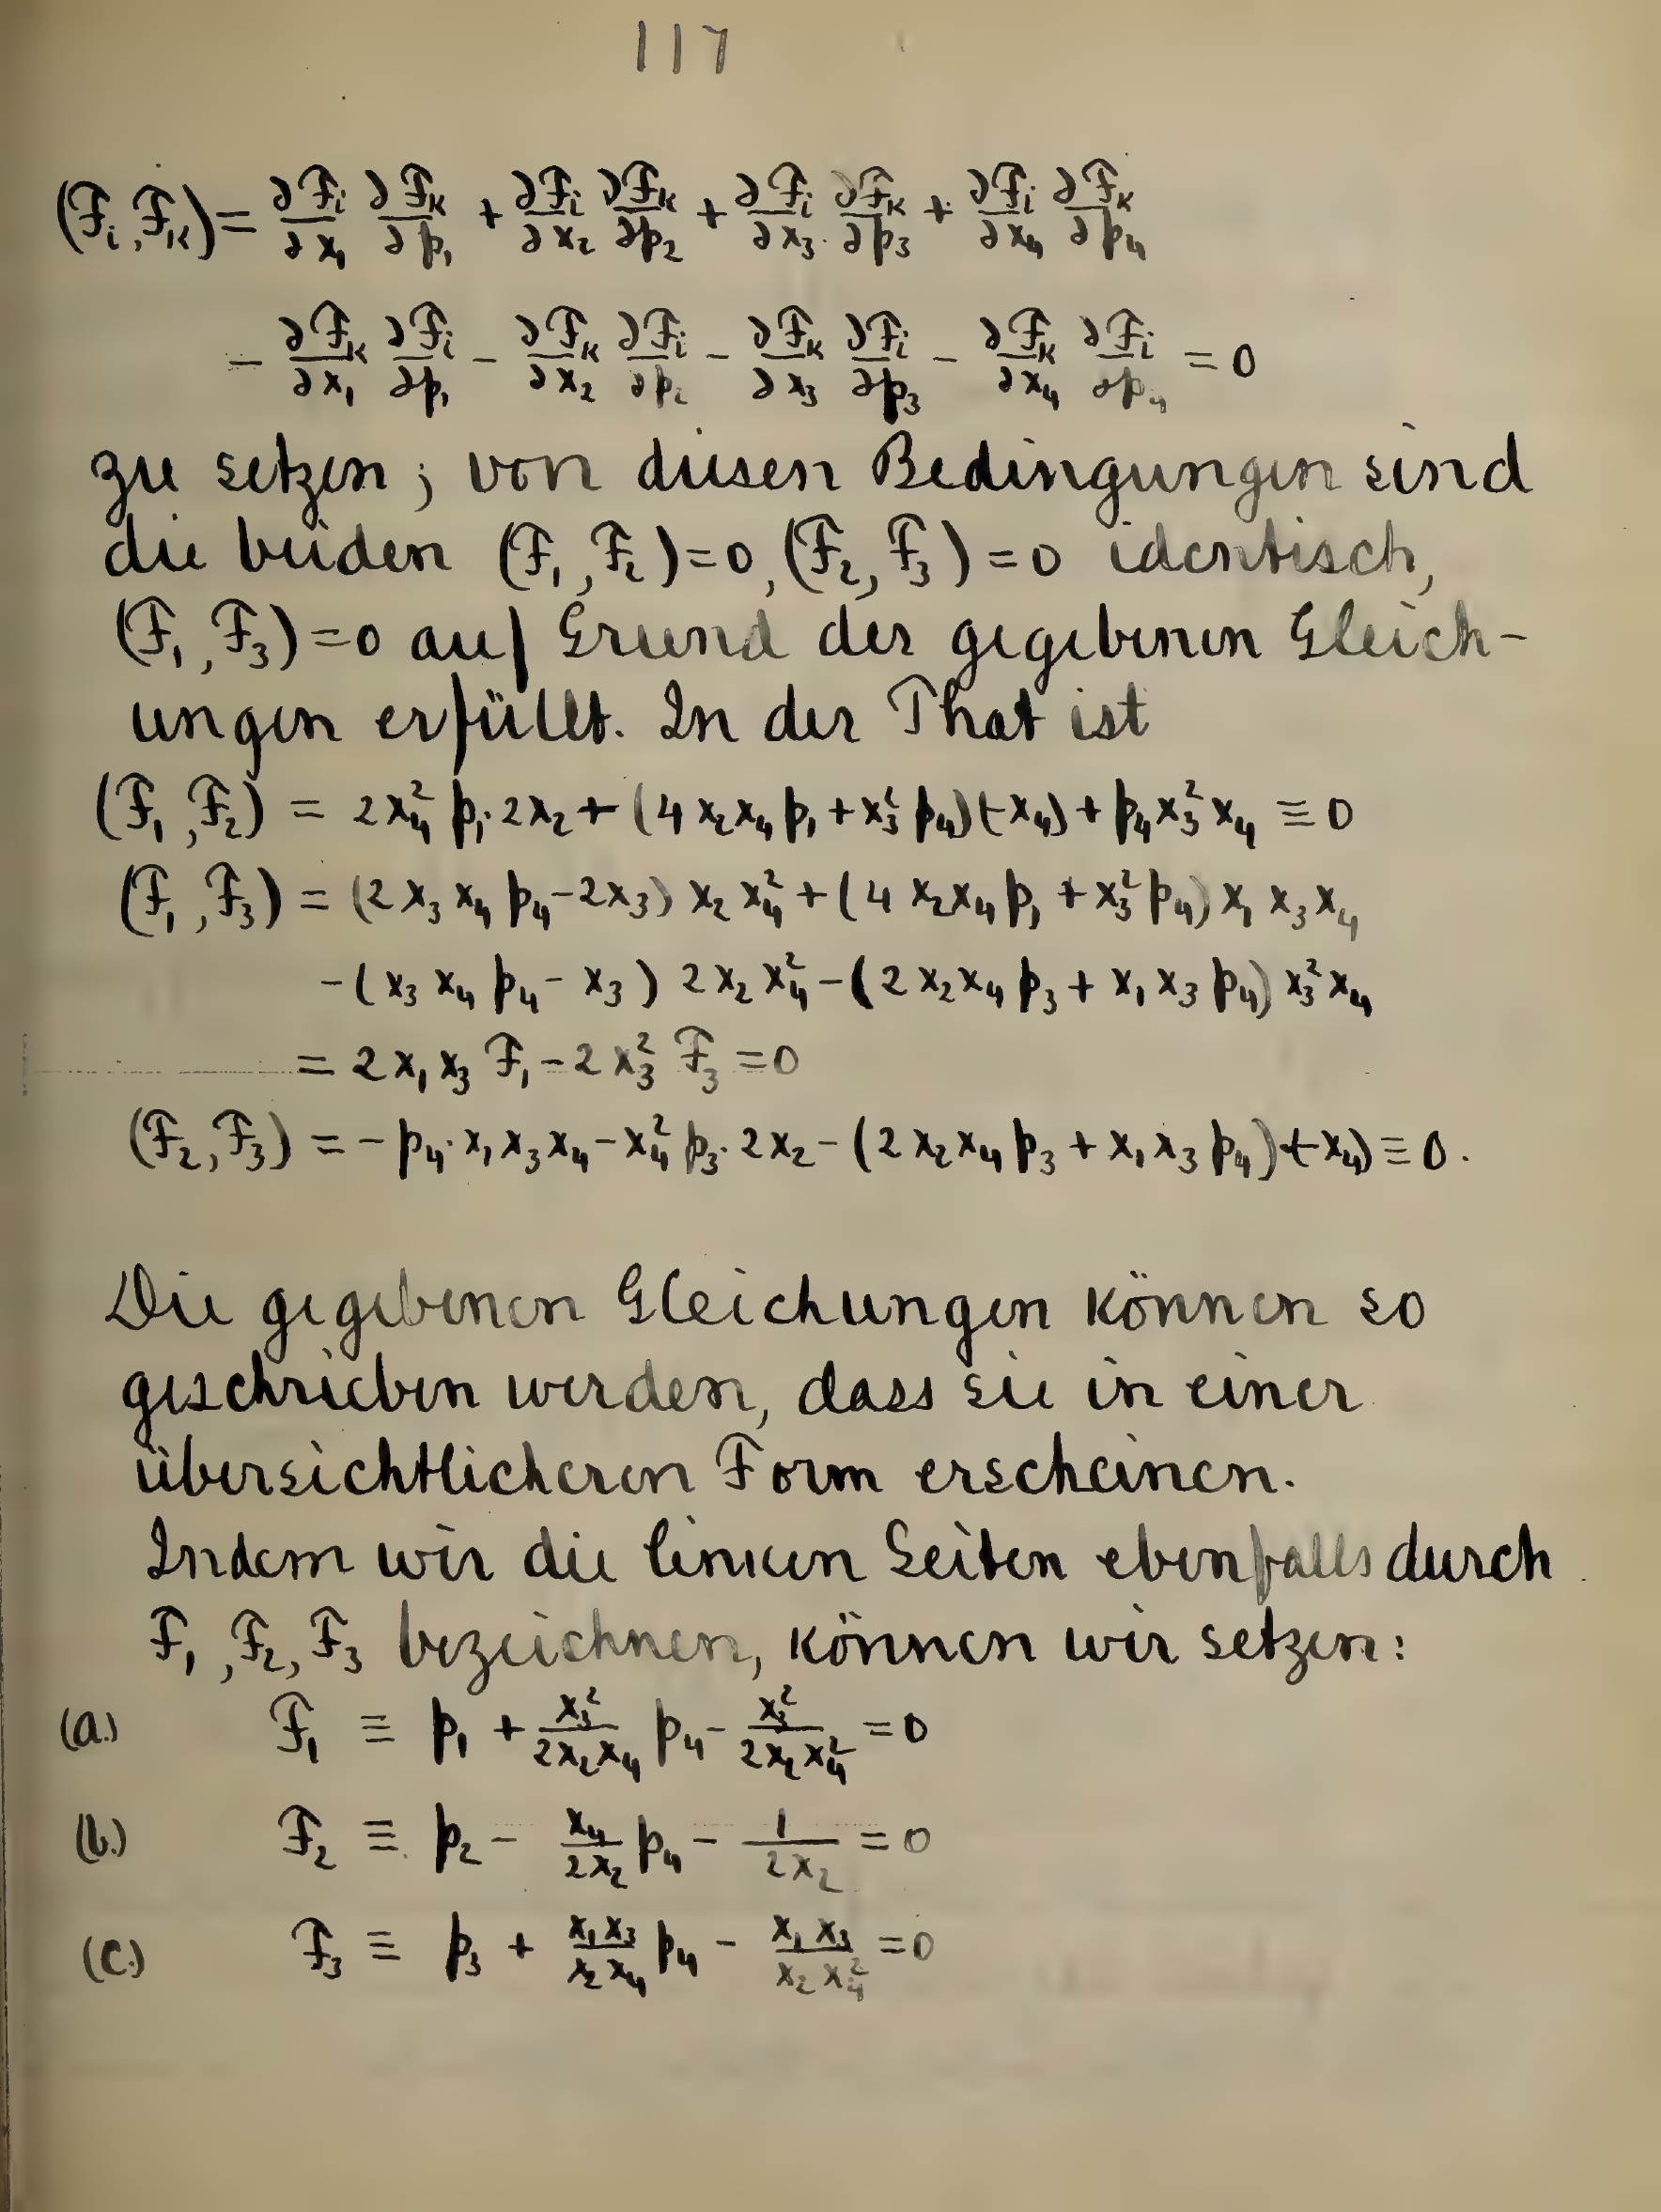 117
(F_i, F_k) = ∂F_i/∂x_1 ∂F_k/∂p_1 + ∂F_i/∂x_2 ∂F_k/∂p_2 + ∂F_i/∂x_3 ∂F_k/∂p_3 + ∂F_i/∂x_4 ∂F_k/∂p_4
- ∂F_k/∂x_1 ∂F_i/∂p_1 - ∂F_k/∂x_2 ∂F_i/∂p_2 - ∂F_k/∂x_3 ∂F_i/∂p_3 - ∂F_k/∂x_4 ∂F_i/∂p_4 = 0
zu setzen; von diesen Bedingungen sind
die beiden (F_1, F_2) = 0, (F_2, F_3) = 0 identisch,
(F_1, F_3) = 0 auf Grund der gegebenen Gleich-
ungen erfüllt. In der That ist
(F_1, F_2) = 2x_4^2 p_1 · 2x_2 + (4 x_2 x_4 p_1 + x_3^2 p_4)(-x_4) + p_4 x_3^2 x_4 ≡ 0
(F_1, F_3) = (2 x_3 x_4 p_4 - 2x_3) x_2 x_4^2 + (4 x_2 x_4 p_1 + x_3^2 p_4) x_1 x_3 x_4
- (x_3 x_4 p_4 - x_3) 2 x_2 x_4^2 - (2 x_2 x_4 p_3 + x_1 x_3 p_4) x_3^2 x_4
= 2 x_1 x_3 F_1 - 2 x_3^2 F_3 = 0
(F_2, F_3) = - p_4 · x_1 x_3 x_4 - x_4^2 p_3 · 2 x_2 - (2 x_2 x_4 p_3 + x_1 x_3 p_4)(-x_4) ≡ 0.
Die gegebenen Gleichungen können so
geschrieben werden, dass sie in einer
übersichtlicheren Form erscheinen.
Indem wir die linken Seiten ebenfalls durch
F_1, F_2, F_3 bezeichnen, können wir setzen:
(a.) F_1 ≡ p_1 + x_3^2/(2x_2 x_4) p_4 - x_3^2/(2x_2 x_4^2) = 0
(b.) F_2 ≡ p_2 - x_4/(2x_2) p_4 - 1/(2x_2) = 0
(c.) F_3 ≡ p_3 + x_1 x_3/(x_2 x_4) p_4 - x_1 x_3/(x_2 x_4^2) = 0